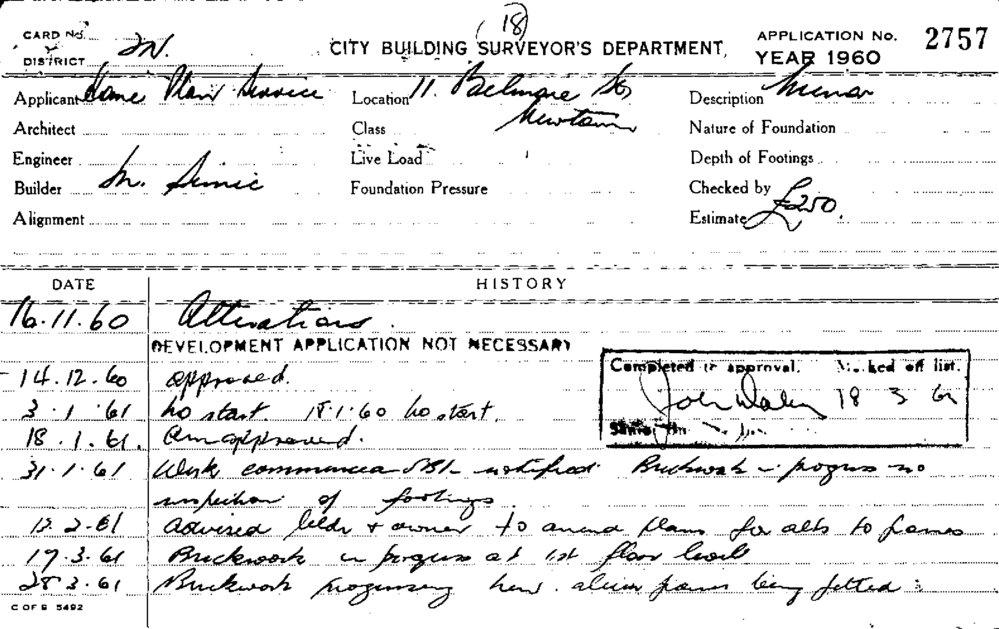 18
CARD No.
DISTRICT
CITY BUILDING SURVEYOR'S DEPARTMENT,
APPLICATION No. 2757
YEAR 1960
Applicant Home Plan Service
Location 11. Belmore St,
Newtown
Description
Architect
Class
Nature of Foundation
Engineer
Live Load
Depth of Footings
Builder M. Simic
Foundation Pressure
Checked by
Alignment
Estimate £250.
DATE HISTORY
16.11.60 Alterations.
DEVELOPMENT APPLICATION NOT NECESSARY
Completed approval. Marked off list.
14.12.60 approved.
18 3
3.1.61 No start 18.1.60 No start.
18.1.61. approved.
31.1.61 Work commenced notified. Brickwork in progress no
inspection of footings
2.61 advised bldr + owner to amend plans for alts to frames
17.3.61 Brickwork in progress at 1st floor level
28.3.61 Brickwork progressing new being fitted
C OF S 5492